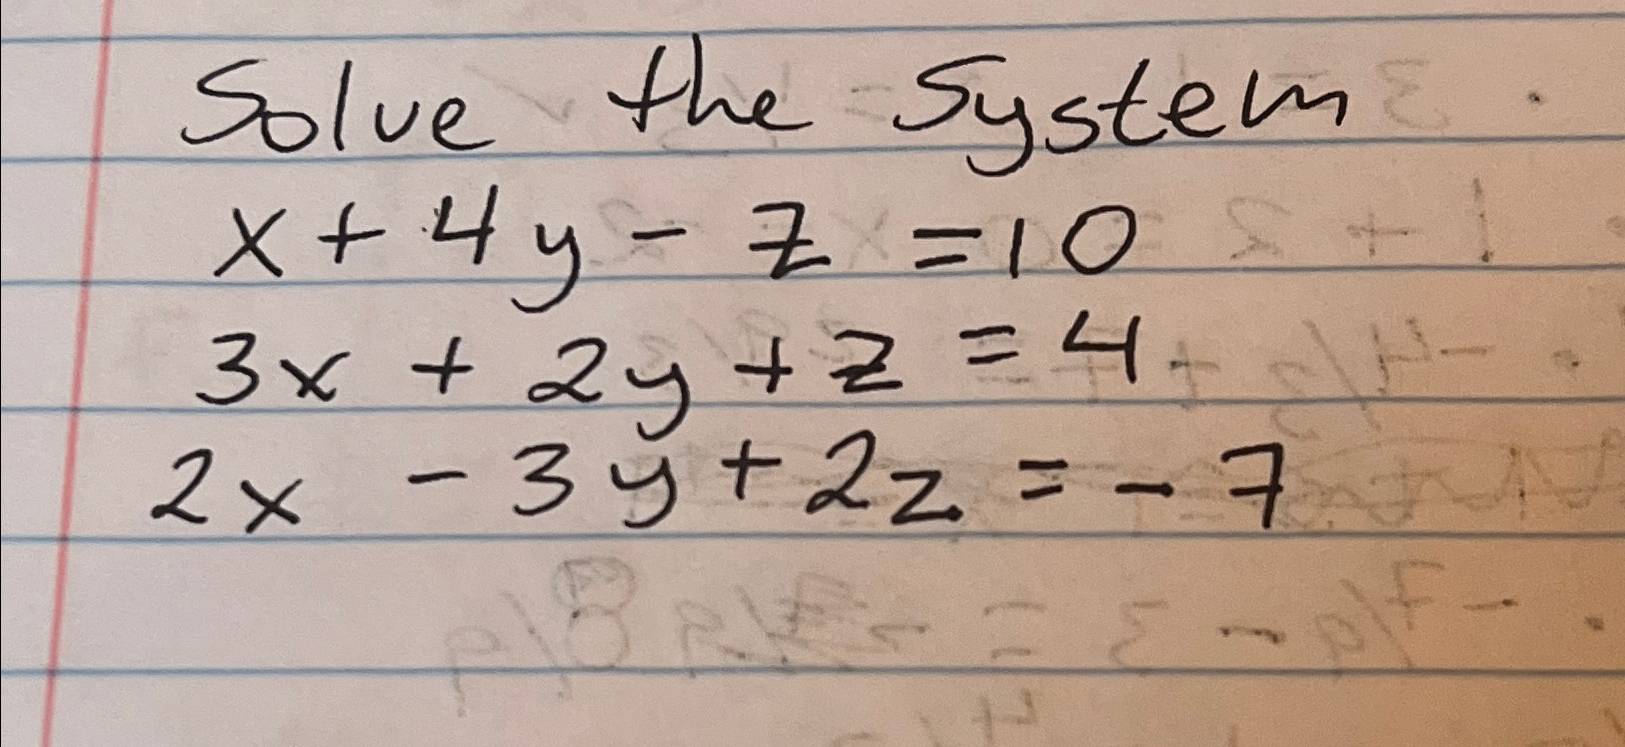 Solve the System
x + 4y - z = 10
3x + 2y + z = 4
2x - 3y + 2z = -7